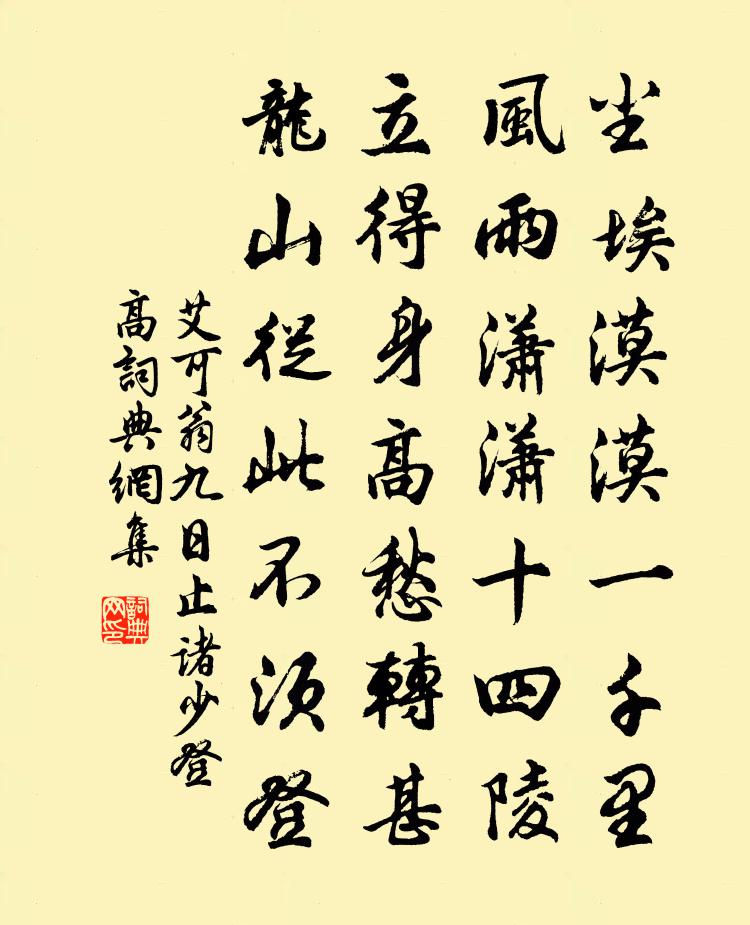 尘埃漠漠一千里
風雨瀟瀟十四陵
立得身高愁轉甚
龍山從此不須登
艾可翁九日止諸少登
高詞典網集
詞典网印